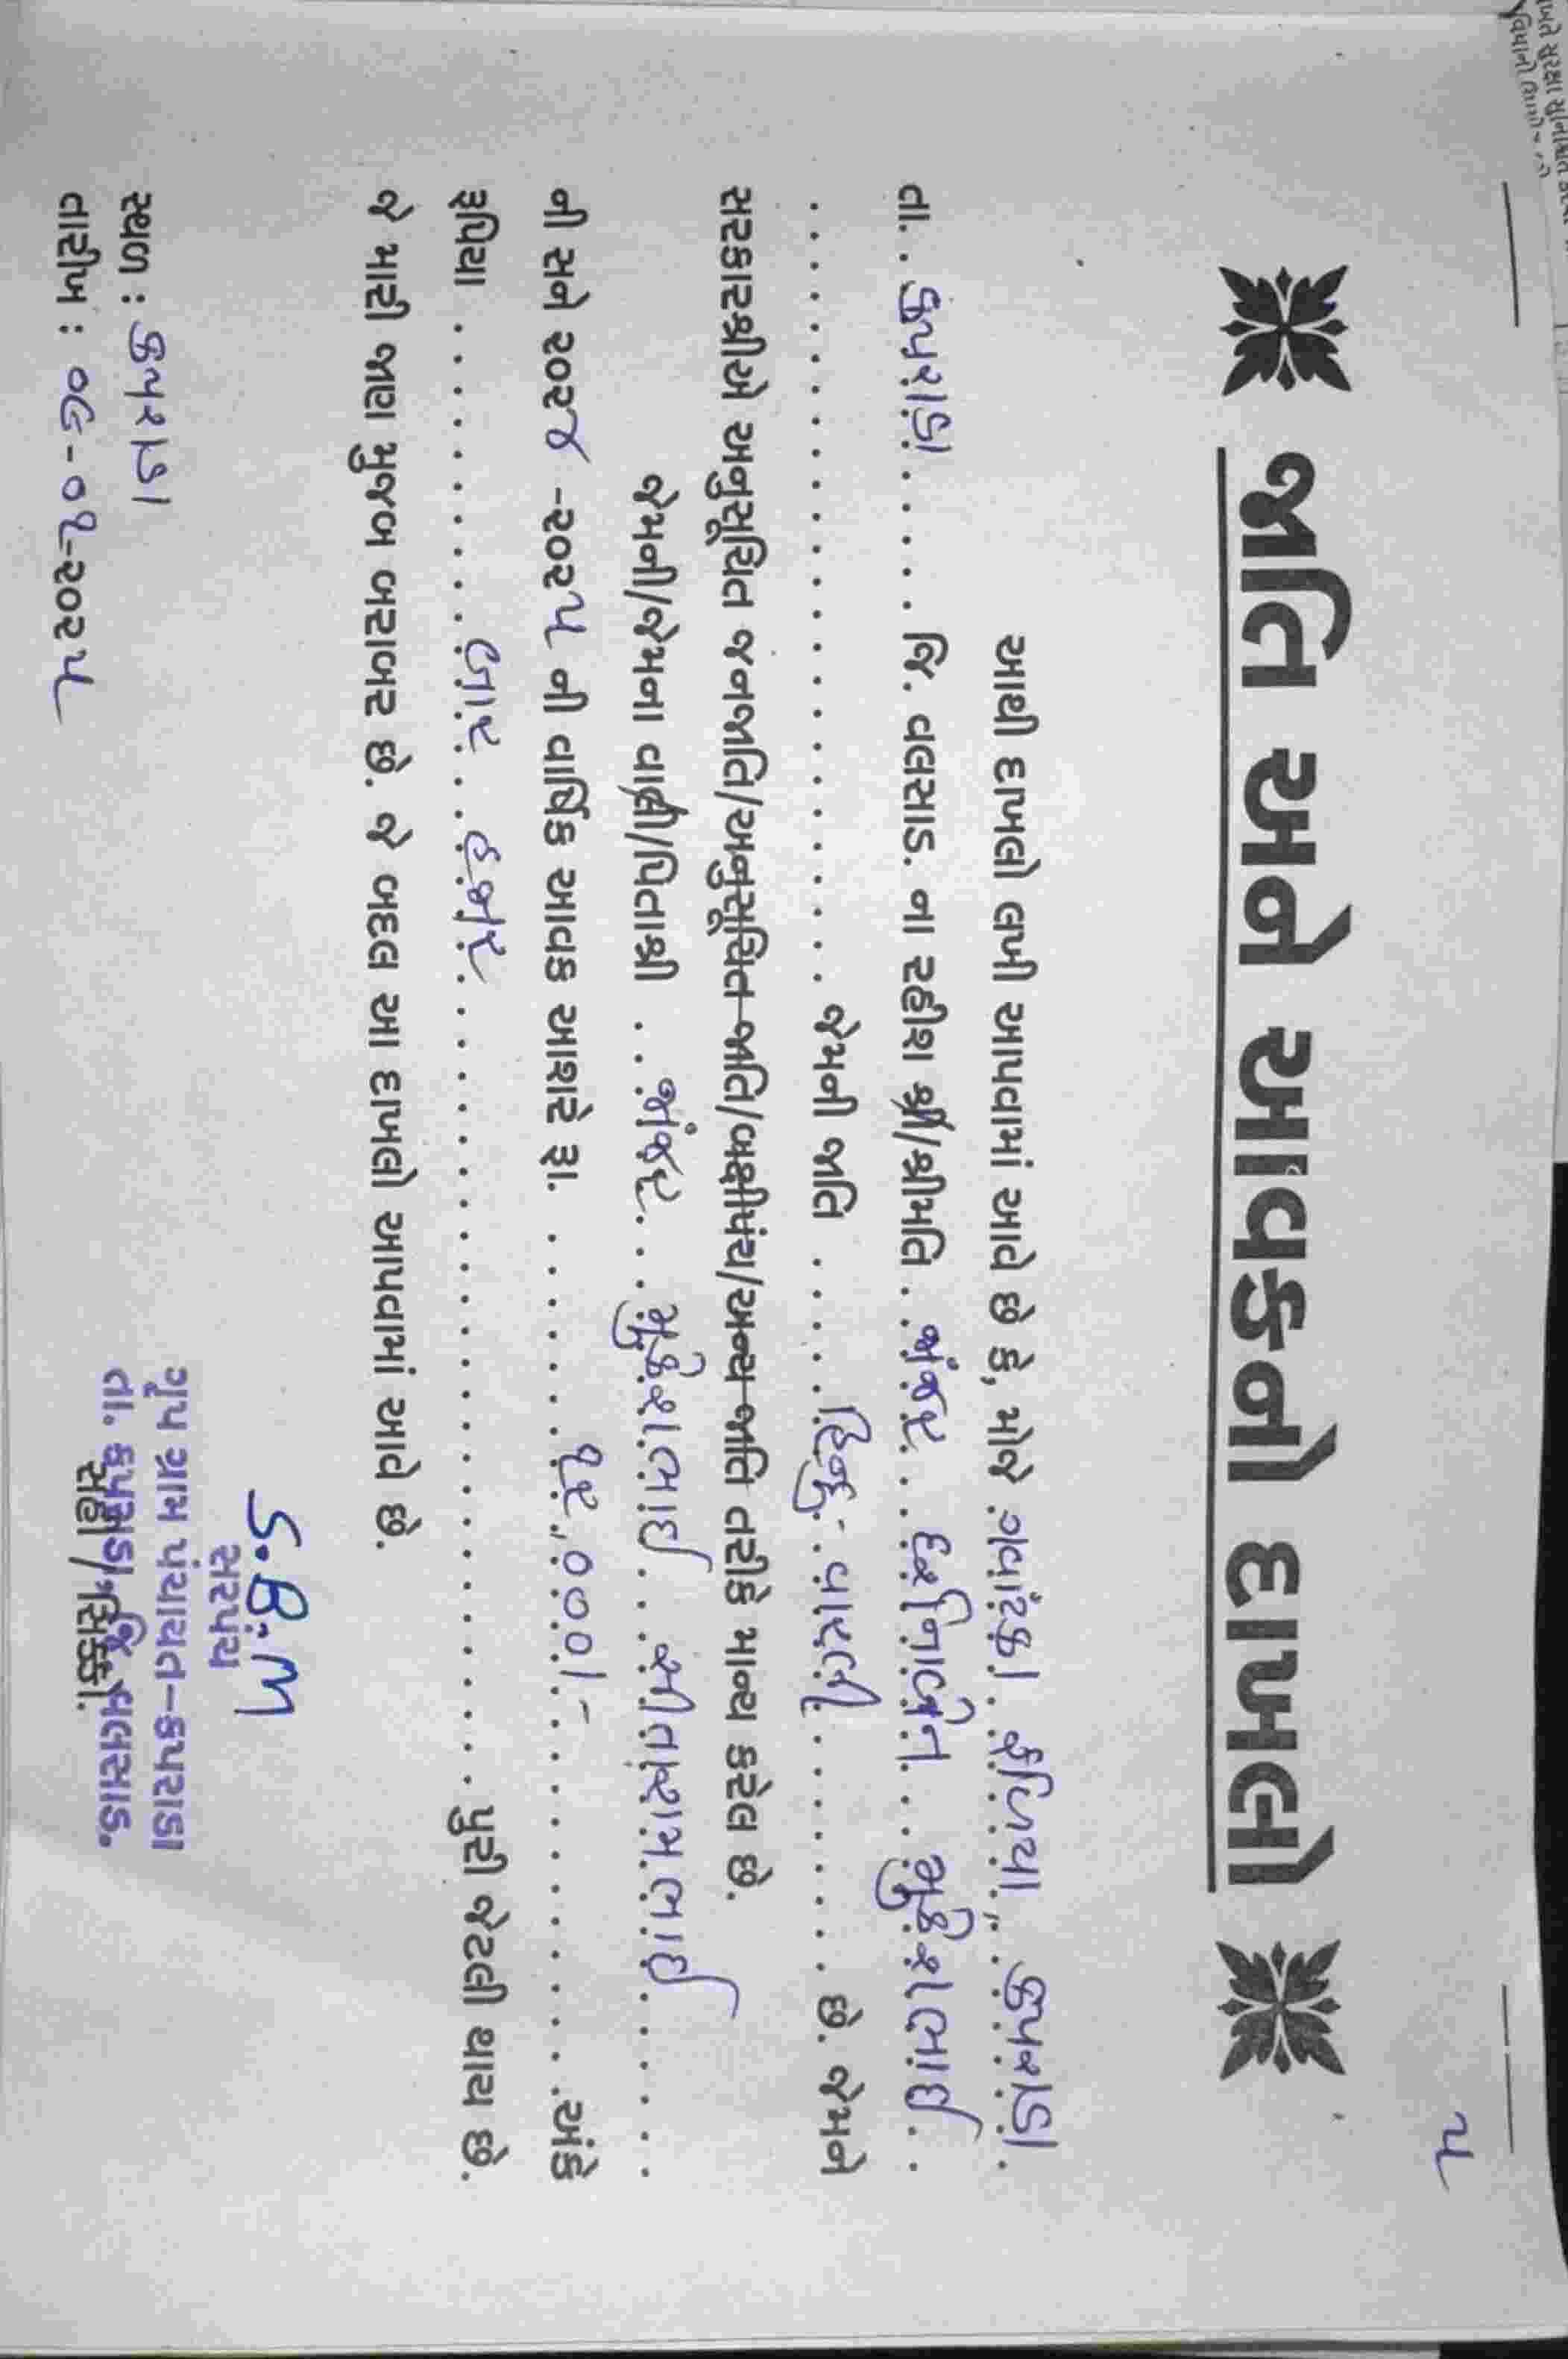 ૫
જાતિ અને આવકનો દાખલો
આથી દાખલો લખી આપવામાં આવે છે કે, મોજે ગવાંટકા ફળિયા, કપરાડા.
તા. કપરાડા જિ. વલસાડ. ના રહીશ શ્રી/શ્રીમતિ જાંજર દર્શનાબેન મુકેશભાઇ
જેમની જાતિ હિન્દુ વારલી છે. જેમને
સરકારશ્રીએ અનુસૂચિત જનજાતિ/અનુસૂચિત જાતિ/બક્ષીપંચ/અન્ય જાતિ તરીકે માન્ય કરેલ છે.
જેમની/જેમના વાલી/પિતાશ્રી જાંજર મુકેશભાઇ સીતારામભાઇ
ની સને ૨૦૨૪ -૨૦૨૫ ની વાર્ષિક આવક આશરે રૂા. ૧૨,૦૦૦/- અંકે
રૂપિયા બાર હજાર પુરી જેટલી થાય છે.
જે મારી જાણ મુજબ બરાબર છે. જે બદલ આ દાખલો આપવામાં આવે છે.
S.B.M
સરપંચ
સ્થળ : કપરાડા
ગૃપ ગ્રામ પંચાયત-કપરાડા
તા. કપરાડા, જિ. વલસાડ.
તારીખ : ૦૮-૦૧-૨૦૨૫
સહી/સિક્કો.